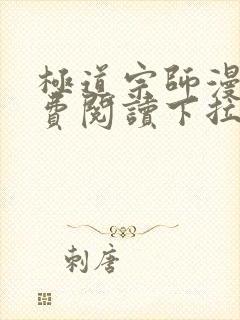 極道宗師漫
費閱讀下拉
刺唐